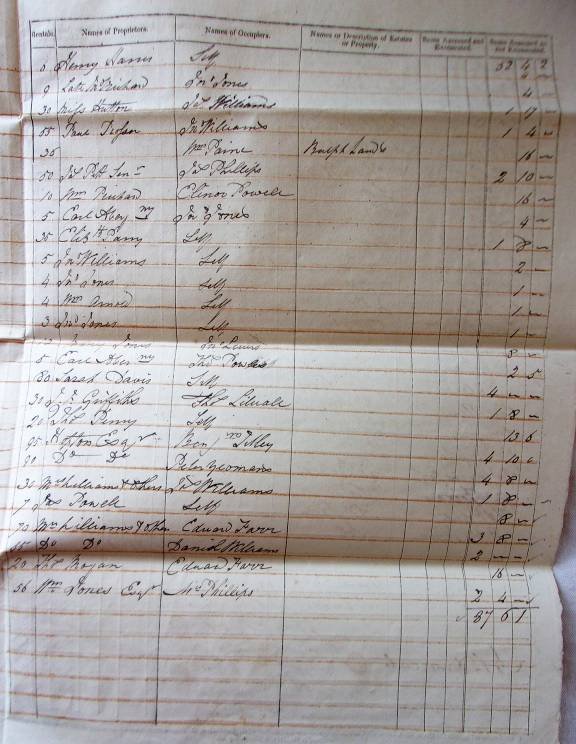 Rentals. Names of Proprietors. Names of Occupiers. Names or Description of Estates or Property. Sums Assessed and Exonerated. Sums Assessed and not Exonerated.
Henry Harris Self 52 4 2
9 Late Mr Prichard Jno Jones 4 —
30 Miss Jas Williams 1 17 —
55 Jno Williams 1 4 —
35 Wm Paine Ralph Lands 16 —
50 Jas Senr Jas Phillips 2 10 —
10 Wm Prichard Elinor Powell 16 —
5 Earl Aberny Jno Jones 4 —
35 Elizth Parry Self 1 8 —
5 Jno Williams Self 2 —
4 Jno Jones Self 1 —
4 Wm Arnold Self 1 —
3 Jno Jones Self 1 —
Jones Jno Lewis 8 —
5 Earl Aberny Thos Powles 2 5
80 Sarah Davis Self 4 — —
30 Griffiths Thos 1 8 —
20 Thos Self 13 6
95 Esqr Benjn Tilley 4 10
90 Do Do Peter Yeomans 4 8 —
30 Mr Williams & others Jas Williams 1 8 —
7 Powell Self 8 —
70 Mr Williams & others Edward Farr 3 8 —
55 Do Do Daniel William 2 — —
20 Thos Morgan Edward Farr 16 —
56 Wm Jones Esqr Mr Phillips 2 4 —
87 6 1